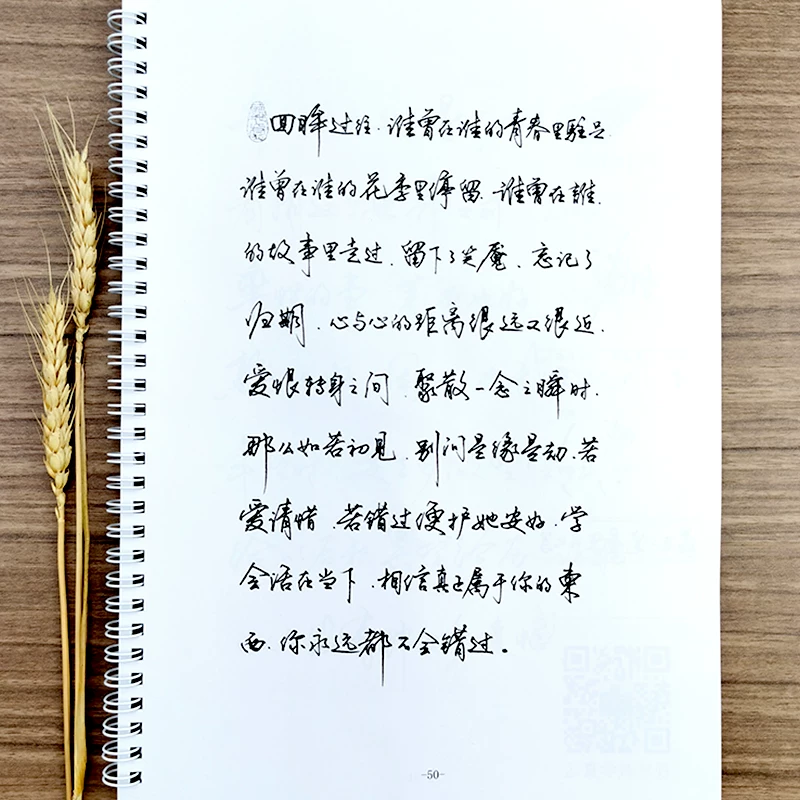 回眸过往、谁曾在谁的青春里驻足
谁曾在谁的花季里停留、谁曾在誰、
的故事里走过、留下了笑魇、忘记了
归期、心与心的距离很远又很近、
爱恨转身之间、聚散一念之瞬时、
那么如若初见、别问是缘是劫、若
爱请惜、若错过便护她安好、学
会活在当下、相信真正属于你的東
西、你永远都不会错过。
-50-